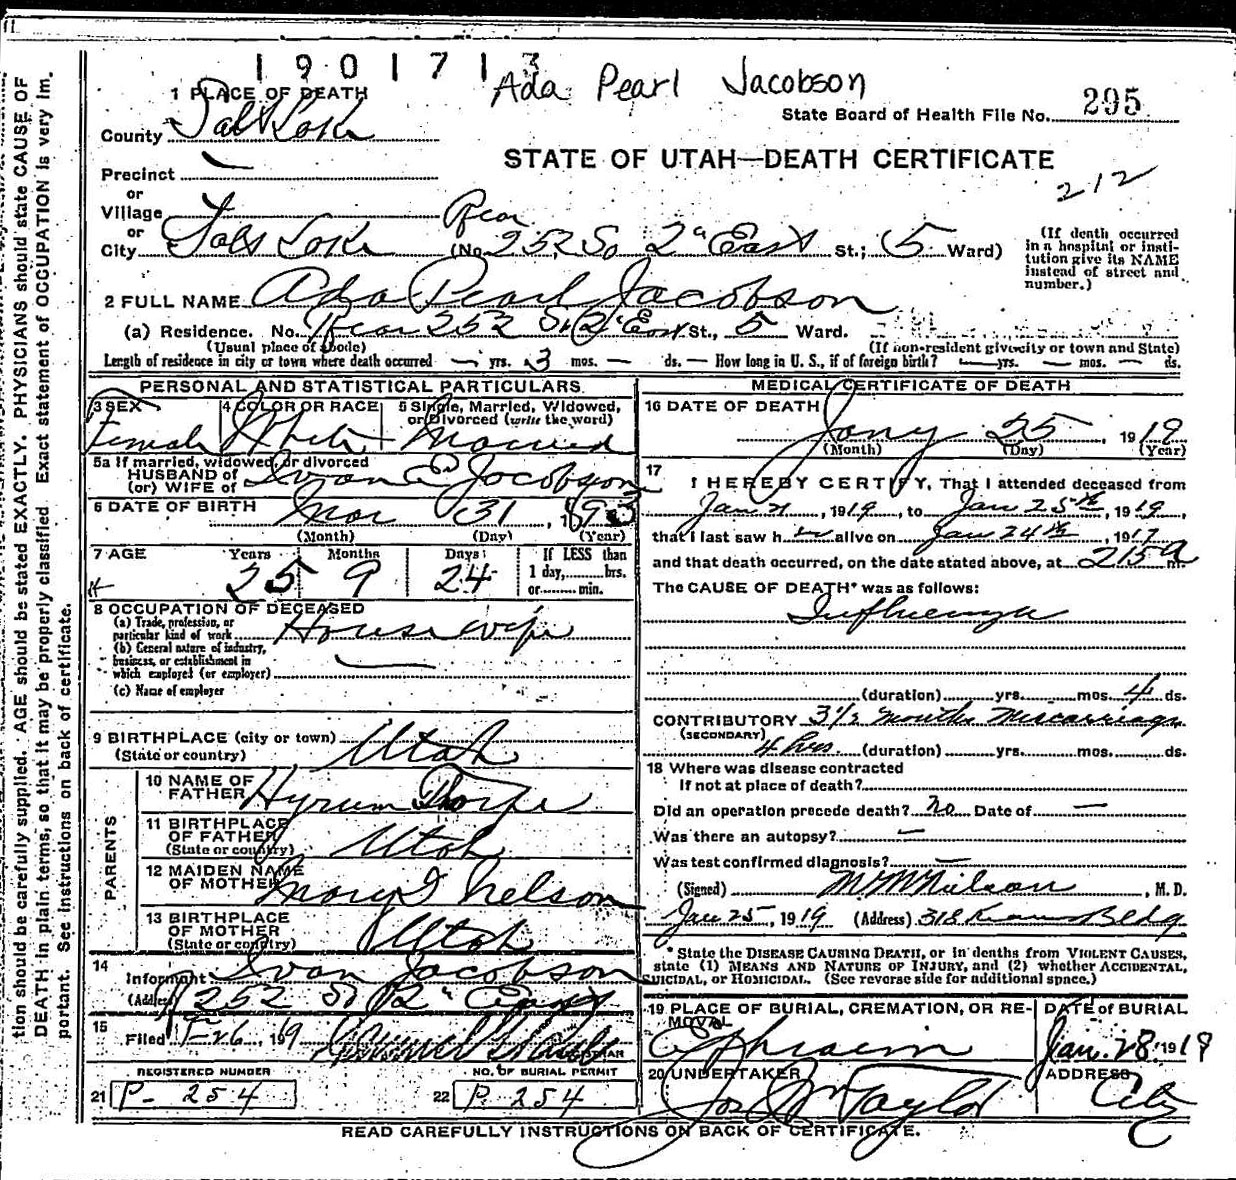 1901713
Ada Pearl Jacobson
1 PLACE OF DEATH
State Board of Health File No. 295
County Salt Lake
STATE OF UTAH—DEATH CERTIFICATE
212
Precinct —
or
Village
or
City Salt Lake (No. Rear 252 So 2" East St.; 5 Ward)
(If death occurred in a hospital or institution give its NAME instead of street and number.)
2 FULL NAME Ada Pearl Jacobson
(a) Residence. No. Rear 252 So 2" East St., 5 Ward.
(Usual place of abode) (If non-resident give city or town and State)
Length of residence in city or town where death occurred — yrs. 3 mos. — ds. — How long in U. S., if of foreign birth? — yrs. — mos. — ds.
PERSONAL AND STATISTICAL PARTICULARS.
3 SEX 4 COLOR OR RACE 5 Single, Married, Widowed, or Divorced (write the word)
Female White Married
5a If married, widowed, or divorced
HUSBAND of
(or) WIFE of Ivan E Jacobson
6 DATE OF BIRTH Mar 31, 1893
(Month) (Day) (Year)
7 AGE Years Months Days If LESS than
25 9 24 1 day, hrs.
or min.
8 OCCUPATION OF DECEASED
(a) Trade, profession, or
particular kind of work House wife
(b) General nature of industry,
business, or establishment in
which employed (or employer) —
(c) Name of employer
9 BIRTHPLACE (city or town)
(State or country) Utah
PARENTS
10 NAME OF
FATHER Hyrum Thorpe
11 BIRTHPLACE
OF FATHER
(State or country) Utah
12 MAIDEN NAME
OF MOTHER Mary I Nelson
13 BIRTHPLACE
OF MOTHER
(State or country) Utah
14
Informant Ivan Jacobson
(Address) R 252 So 2" East
15
Filed 26, 1919
REGISTRAR
REGISTERED NUMBER NO. OF BURIAL PERMIT
21 P- 254 22 P. 254
MEDICAL CERTIFICATE OF DEATH
16 DATE OF DEATH
Jany 25, 1919
(Month) (Day) (Year)
17
I HEREBY CERTIFY, That I attended deceased from
Jan 21, 1919, to Jan 25th, 1919,
that I last saw h alive on Jan 24th, 1917
and that death occurred, on the date stated above, at 215 a m.
The CAUSE OF DEATH* was as follows:
Influenza
(duration) yrs. mos. 4 ds.
CONTRIBUTORY 3 1/2 months Miscarriage
(SECONDARY)
4 hrs (duration) yrs. mos. ds.
18 Where was disease contracted
If not at place of death?
Did an operation precede death? no Date of —
Was there an autopsy? —
Was test confirmed diagnosis? —
(Signed) M M Nielson, M. D.
Jan 25, 1919 (Address) 318 Bldg
* State the DISEASE CAUSING DEATH, or in deaths from VIOLENT CAUSES,
state (1) MEANS AND NATURE OF INJURY, and (2) whether ACCIDENTAL,
SUICIDAL, or HOMICIDAL. (See reverse side for additional space.)
19 PLACE OF BURIAL, CREMATION, OR RE-
MOVAL DATE of BURIAL
Ephraim Jan. 28 1919
20 UNDERTAKER ADDRESS
Jos Wm Taylor City
READ CAREFULLY INSTRUCTIONS ON BACK OF CERTIFICATE.
tion should be carefully supplied. AGE should be stated EXACTLY. PHYSICIANS should state CAUSE OF
DEATH in plain terms, so that it may be properly classified. Exact statement of OCCUPATION is very im-
portant. See instructions on back of certificate.